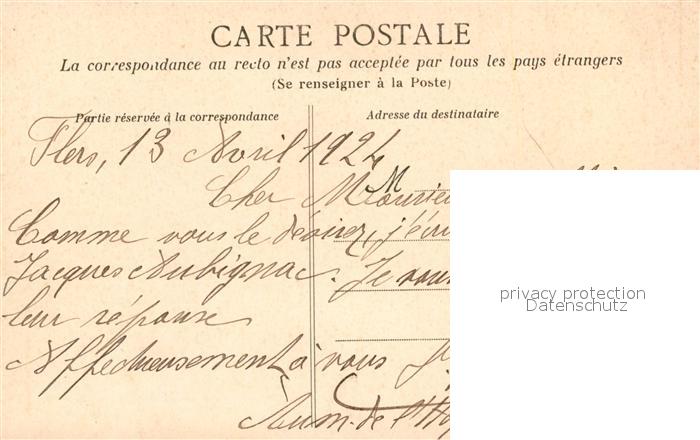 CARTE POSTALE
La correspondance au recto n'est pas acceptée par tous les pays étrangers
(Se renseigner à la Poste)
Partie réservée à la correspondance
Adresse du destinataire
Flers, 13 Avril 1924
M
Cher Monsieur
Comme vous le désirez, j'écri
Jacques Aubignac. Je vous
leur réponse
Affectueusement à vous
Aum. de l'
privacy protection
Datenschutz